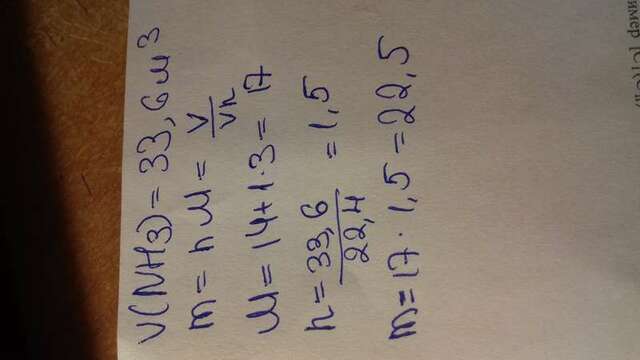 V(NH3) = 33,6 м³
m = n M = V/Vn
M = 14+1·3 = 17
n = 33,6/22,4 = 1,5
m = 17 · 1,5 = 22,5